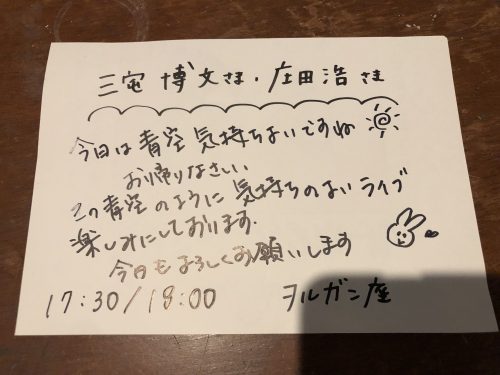 三宅 博文さま・庄田 浩さま
今日は青空気持ちよいですね
お帰りなさい
この青空のように気持ちのよいライブ
楽しみにしております.
今日もよろしくお願いします
17:30/18:00 ヲルガン座